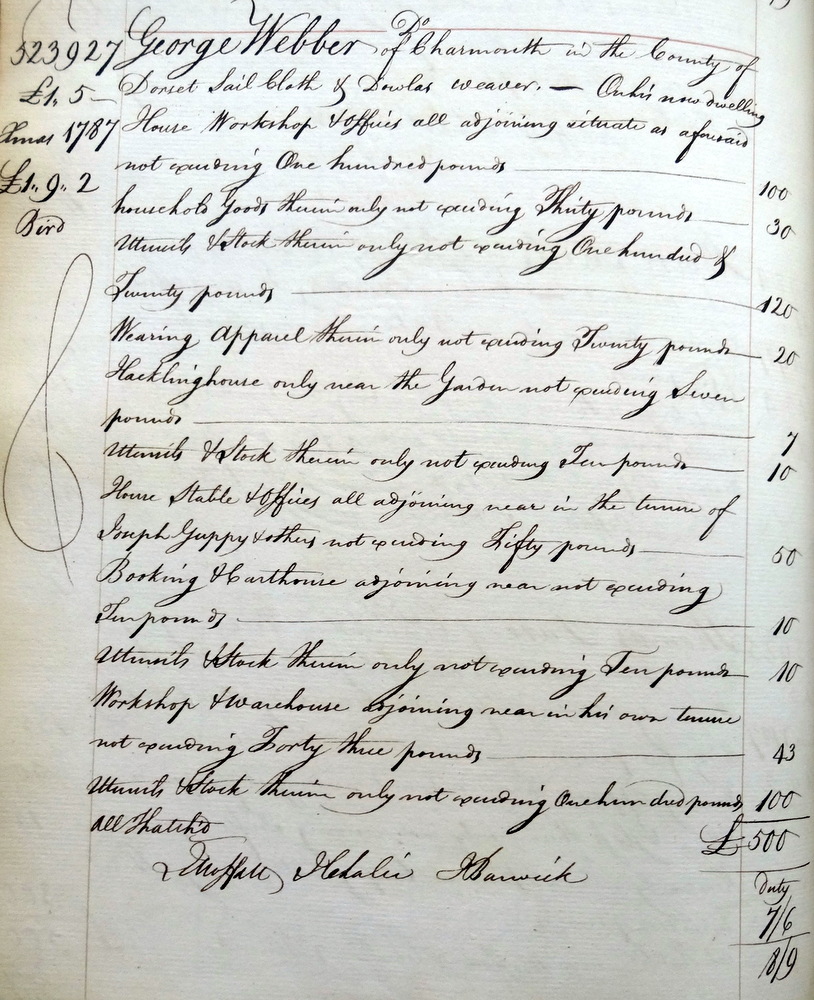 Do
523927 George Webber of Charmouth in the County of
£1,, 5 — Dorset Sail Cloth & Dowlas weaver. — On his now dwelling
Xmas 1787 House Workshop & Offices all adjoining situate as aforesaid
not exceeding One hundred pounds 100
£1,, 9,, 2
household Goods therein only not exceeding Thirty pounds 30
Bird
Utensils & Stock therein only not exceeding One hundred &
Twenty pounds 120
Wearing Apparel therein only not exceeding Twenty pounds 20
Hacklinghouse only near the Garden not exceeding Seven
pounds 7
Utensils & Stock therein only not exceeding Ten pounds 10
House Stable & Offices all adjoining near in the tenure of
Joseph Guppy & others not exceeding Fifty pounds 50
Bocking & Carthouse adjoining near not exceeding
Ten pounds 10
Utensils & Stock therein only not exceeding Ten pounds 10
Workshop & Warehouse adjoining near in his own tenure
not exceeding Forty three pounds 43
Utensils & Stock therein only not exceeding One hundred pounds 100
All Thatch'd £500
Moffatt Barwick
duty
7/6
8/9